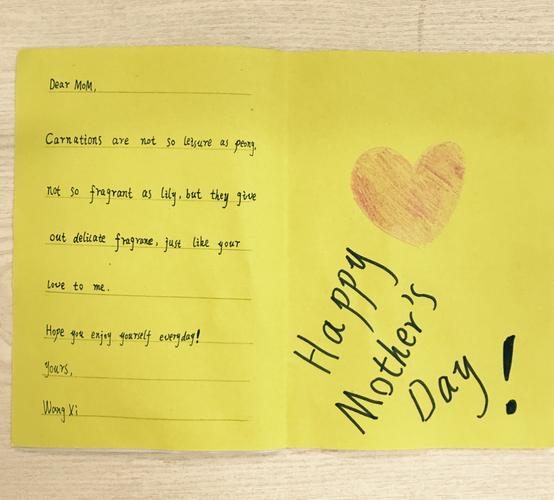 Dear MoM,
Carnations are not so leisure as peony,
not so fragrant as lily, but they give
out delicate fragrane, just like your
love to me.
Hope you enjoy yourself everyday!
Yours,
Wang Xi
Happy
Mother's
Day!